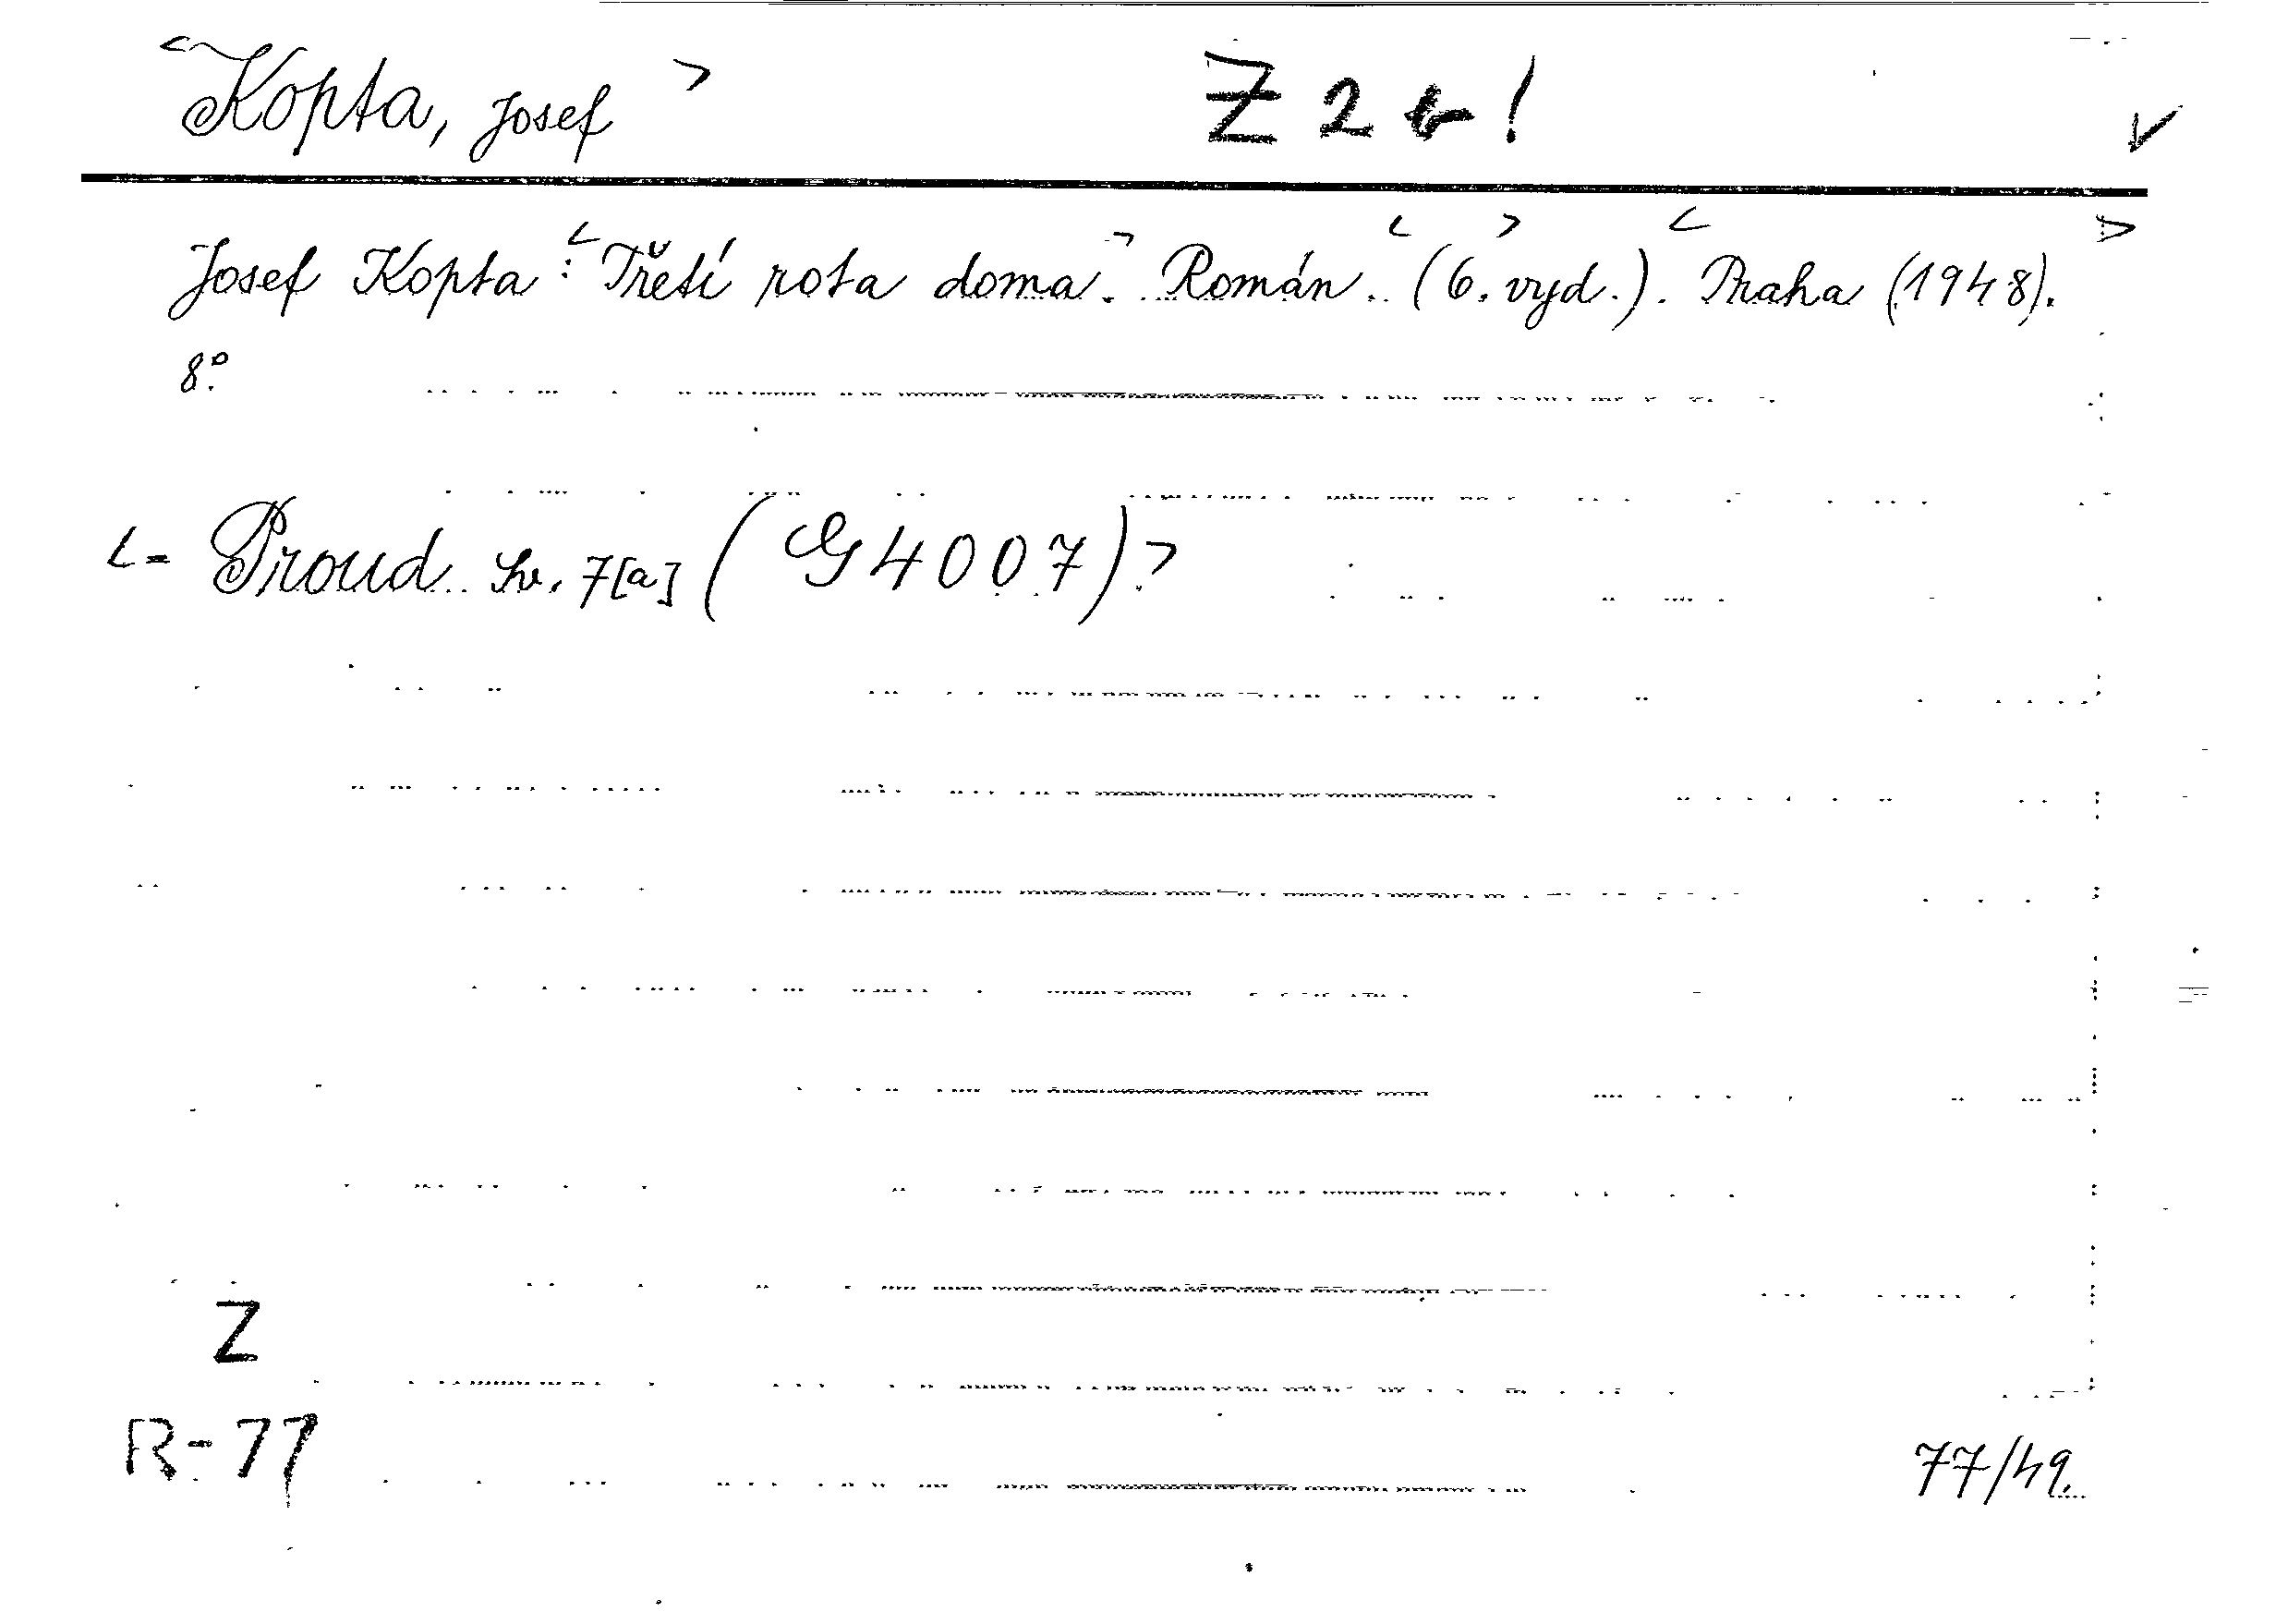 <Kopta, Josef> Z 2 b !
Josef Kopta: <Třetí rota doma.> Román. <(6. vyd.)>. <Praha (1948).>
8°.
<= Proud. Sv. 7[a] (G 4007)>
Z
R-77
77/49.